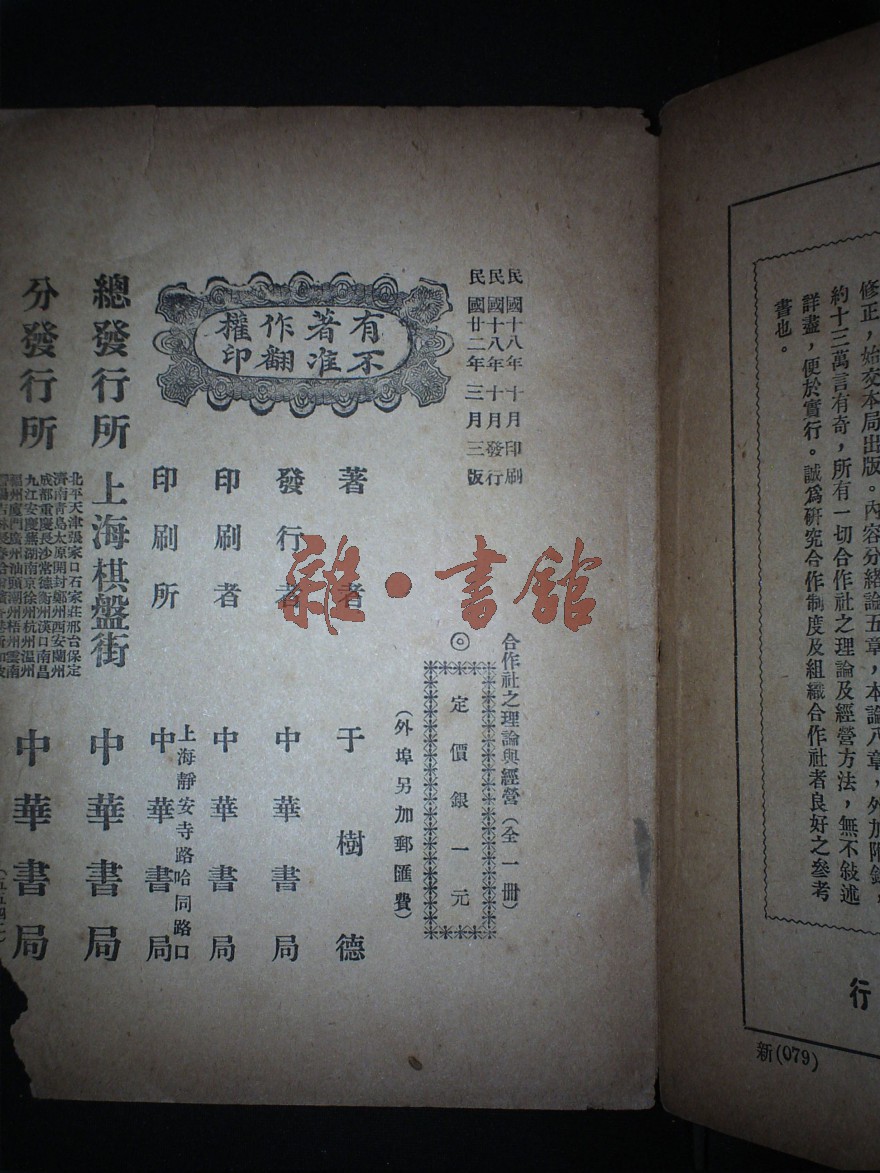 修正，始交本局出版。內容分緒論五章，本論八章，外加附錄，
約十三萬言有奇，所有一切合作社之理論及經營方法，無不敍述
詳盡，便於實行。誠爲研究合作制度及組織合作社者良好之參考
書也。
行
新(079)
民國十八年十月印刷
民國十八年十月發行
民國廿二年三月三版
有著作權
不准翻印
合作社之理論與經營（全一冊）
◎定價銀一元
（外埠另加郵匯費）
著者 于樹德
發行者 中華書局
印刷者 中華書局
印刷所 上海靜安寺路哈同路口 中華書局
總發行所 上海棋盤街 中華書局
分發行所
北平天津張家口石家莊邢台保定
濟南青島太原開封鄭州西安蘭州
成都重慶長沙常德衡州漢口南昌
九江安慶蕪湖南京徐州杭州溫州
福州廈門廣州汕頭潮州梧州雲南
中華書局
雜·書舘